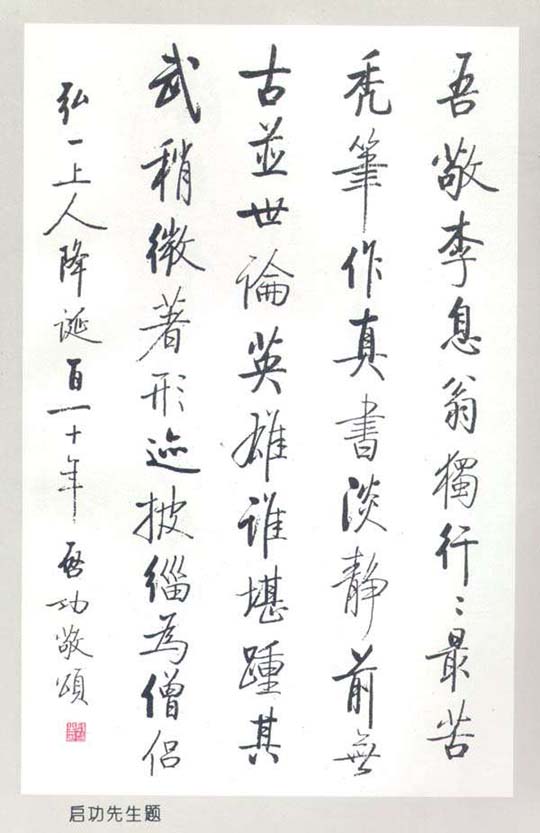 吾敬李息翁獨行〻最苦
禿筆作真書淡靜前無
古並世論英雄誰堪踵其
武稍微著形迹披緇為僧侶
弘一上人降誕百一十年 啓功敬頌
启功先生题